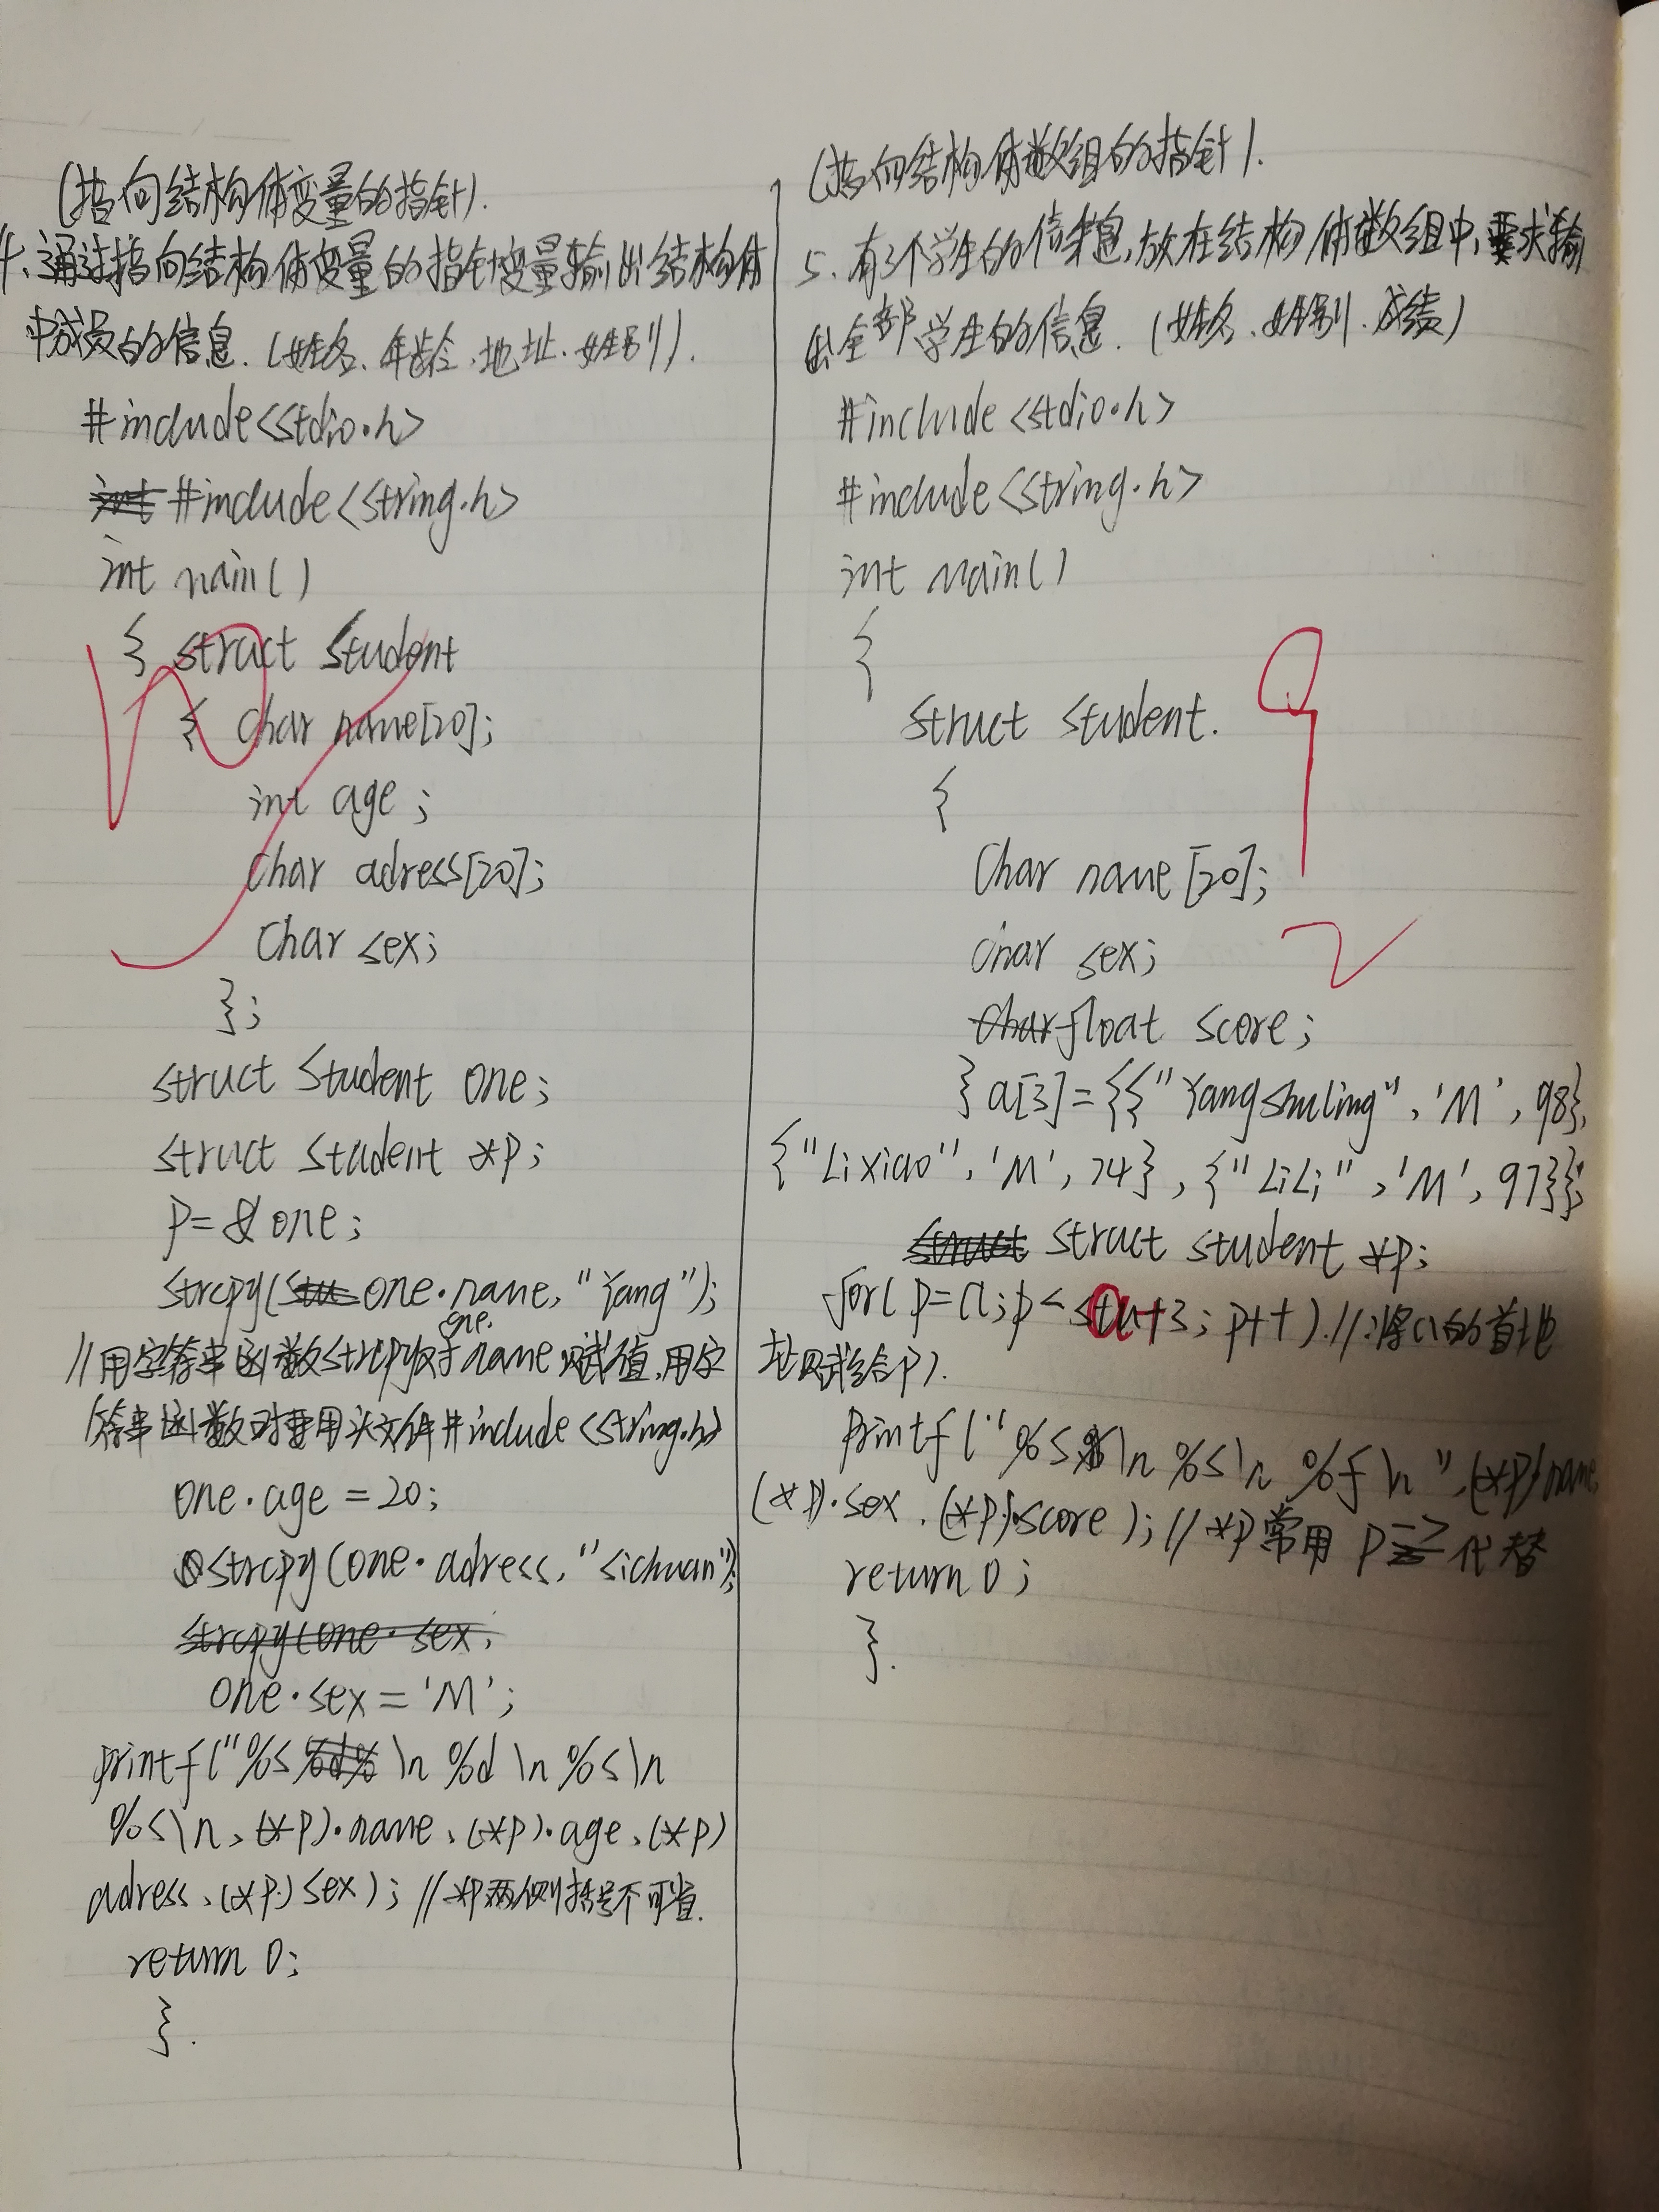 (指向结构体变量的指针).
4、通过指向结构体变量的指针变量输出结构体
中成员的信息.(姓名、年龄、地址、性别).
#include<stdio.h>
#include<string.h>
int main()
{ struct Student
{ char name[20];
int age;
char adress[20];
char sex;
};
struct Student one;
struct Student *p;
p=&one;
strcpy(one.name,"Yang");
//用字符串函数strcpy对one.name赋值,用字
符串函数时要用头文件#include<string.h>
one.age=20;
strcpy(one.adress,"sichuan");
one.sex='M';
printf("%s \n %d \n %s\n
%s\n,(*p).name,(*p).age,(*p)
adress,(*p.)sex); //*p两侧括号不可省.
return 0;
}.
(指向结构体数组的指针).
5.有3个学生的信息,放在结构体数组中,要求输
出全部学生的信息.(姓名、性别、成绩)
#include<stdio.h>
#include<string.h>
int main()
{
struct student.
{
char name[20];
char sex;
float score;
}a[3]={{"Yangshuling",'M',98},
{"Lixiao",'M',74},{"LiLi",'M',97}};
struct student *p;
for(p=a;p<a+3;p++).//:将a的首地
址赋给p).
printf("%s\n %s\n %f\n",(*p)name,
(*p).sex,(*p).score);//*p常用p->代替
return 0;
}.